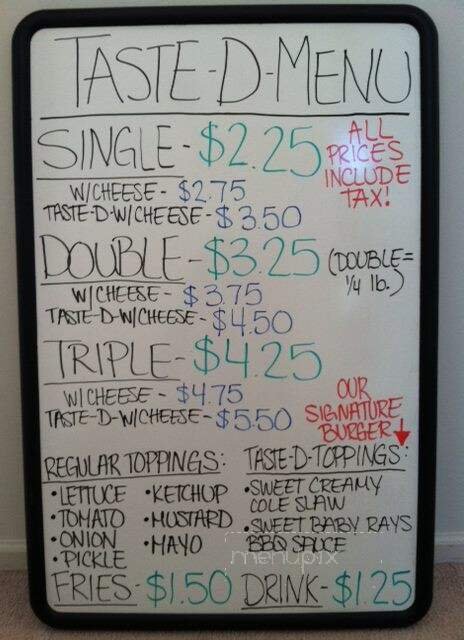 TASTE-D-MENU
SINGLE-$2.25
ALL PRICES INCLUDE TAX!
W/CHEESE-$2.75
TASTE-D-W/CHEESE-$3.50
DOUBLE-$3.25 (DOUBLE= 1/4 lb.)
W/CHEESE-$3.75
TASTE-D-W/CHEESE-$4.50
TRIPLE-$4.25
W/CHEESE-$4.75
TASTE-D-W/CHEESE-$5.50
OUR SIGNATURE BURGER↓
REGULAR TOPPINGS:
•LETTUCE
•TOMATO
•ONION
•PICKLE
•KETCHUP
•MUSTARD
•MAYO
TASTE-D-TOPPINGS:
•SWEET CREAMY
COLE SLAW
•SWEET BABY RAYS
BBQ SAUCE
menupix
FRIES-$1.50 DRINK-$1.25